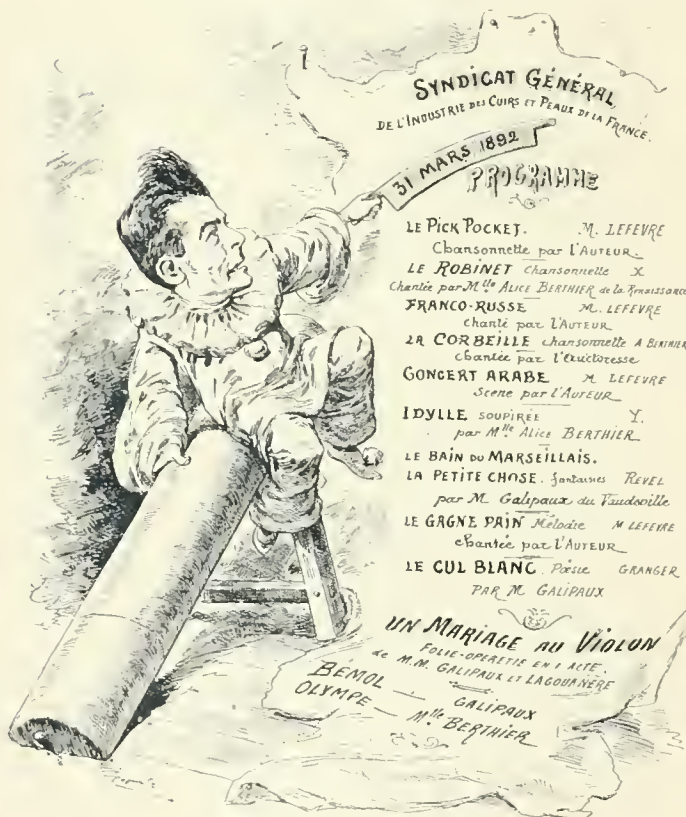 SYNDICAT GÉNÉRAL
DE L'INDUSTRIE DES CUIRS ET PEAUX DE LA FRANCE.
31 MARS 1892
PROGRAMME
LE PICK POCKET. M. LEFEVRE
Chansonnette par l'AUTEUR.
LE ROBINET chansonnette X
Chantée par Mlle ALICE BERTHIER de la Renaissance
FRANCO-RUSSE M. LEFEVRE
chanté par l'AUTEUR
LA CORBEILLE chansonnette A BERTHIER
chantée par l'Auctoresse
CONCERT ARABE M LEFEVRE
Scene par l'AUTEUR
IDYLLE SOUPIRÉE Y.
par Mlle Alice BERTHIER
LE BAIN DU MARSEILLAIS.
LA PETITE CHOSE. fantaisies REVEL
par M. Galipaux du Vaudeville
LE GAGNE PAIN Mélodie M LEFEVRE
chantée par l'AUTEUR
LE CUL BLANC Poésie GRANGER
PAR M GALIPAUX
UN MARIAGE AU VIOLON
FOLIE-OPERETTE EN 1 ACTE.
de M.M. GALIPAUX ET LAGOUANÈRE
BÉMOL — GALIPAUX
OLYMPE — Mlle BERTHIER